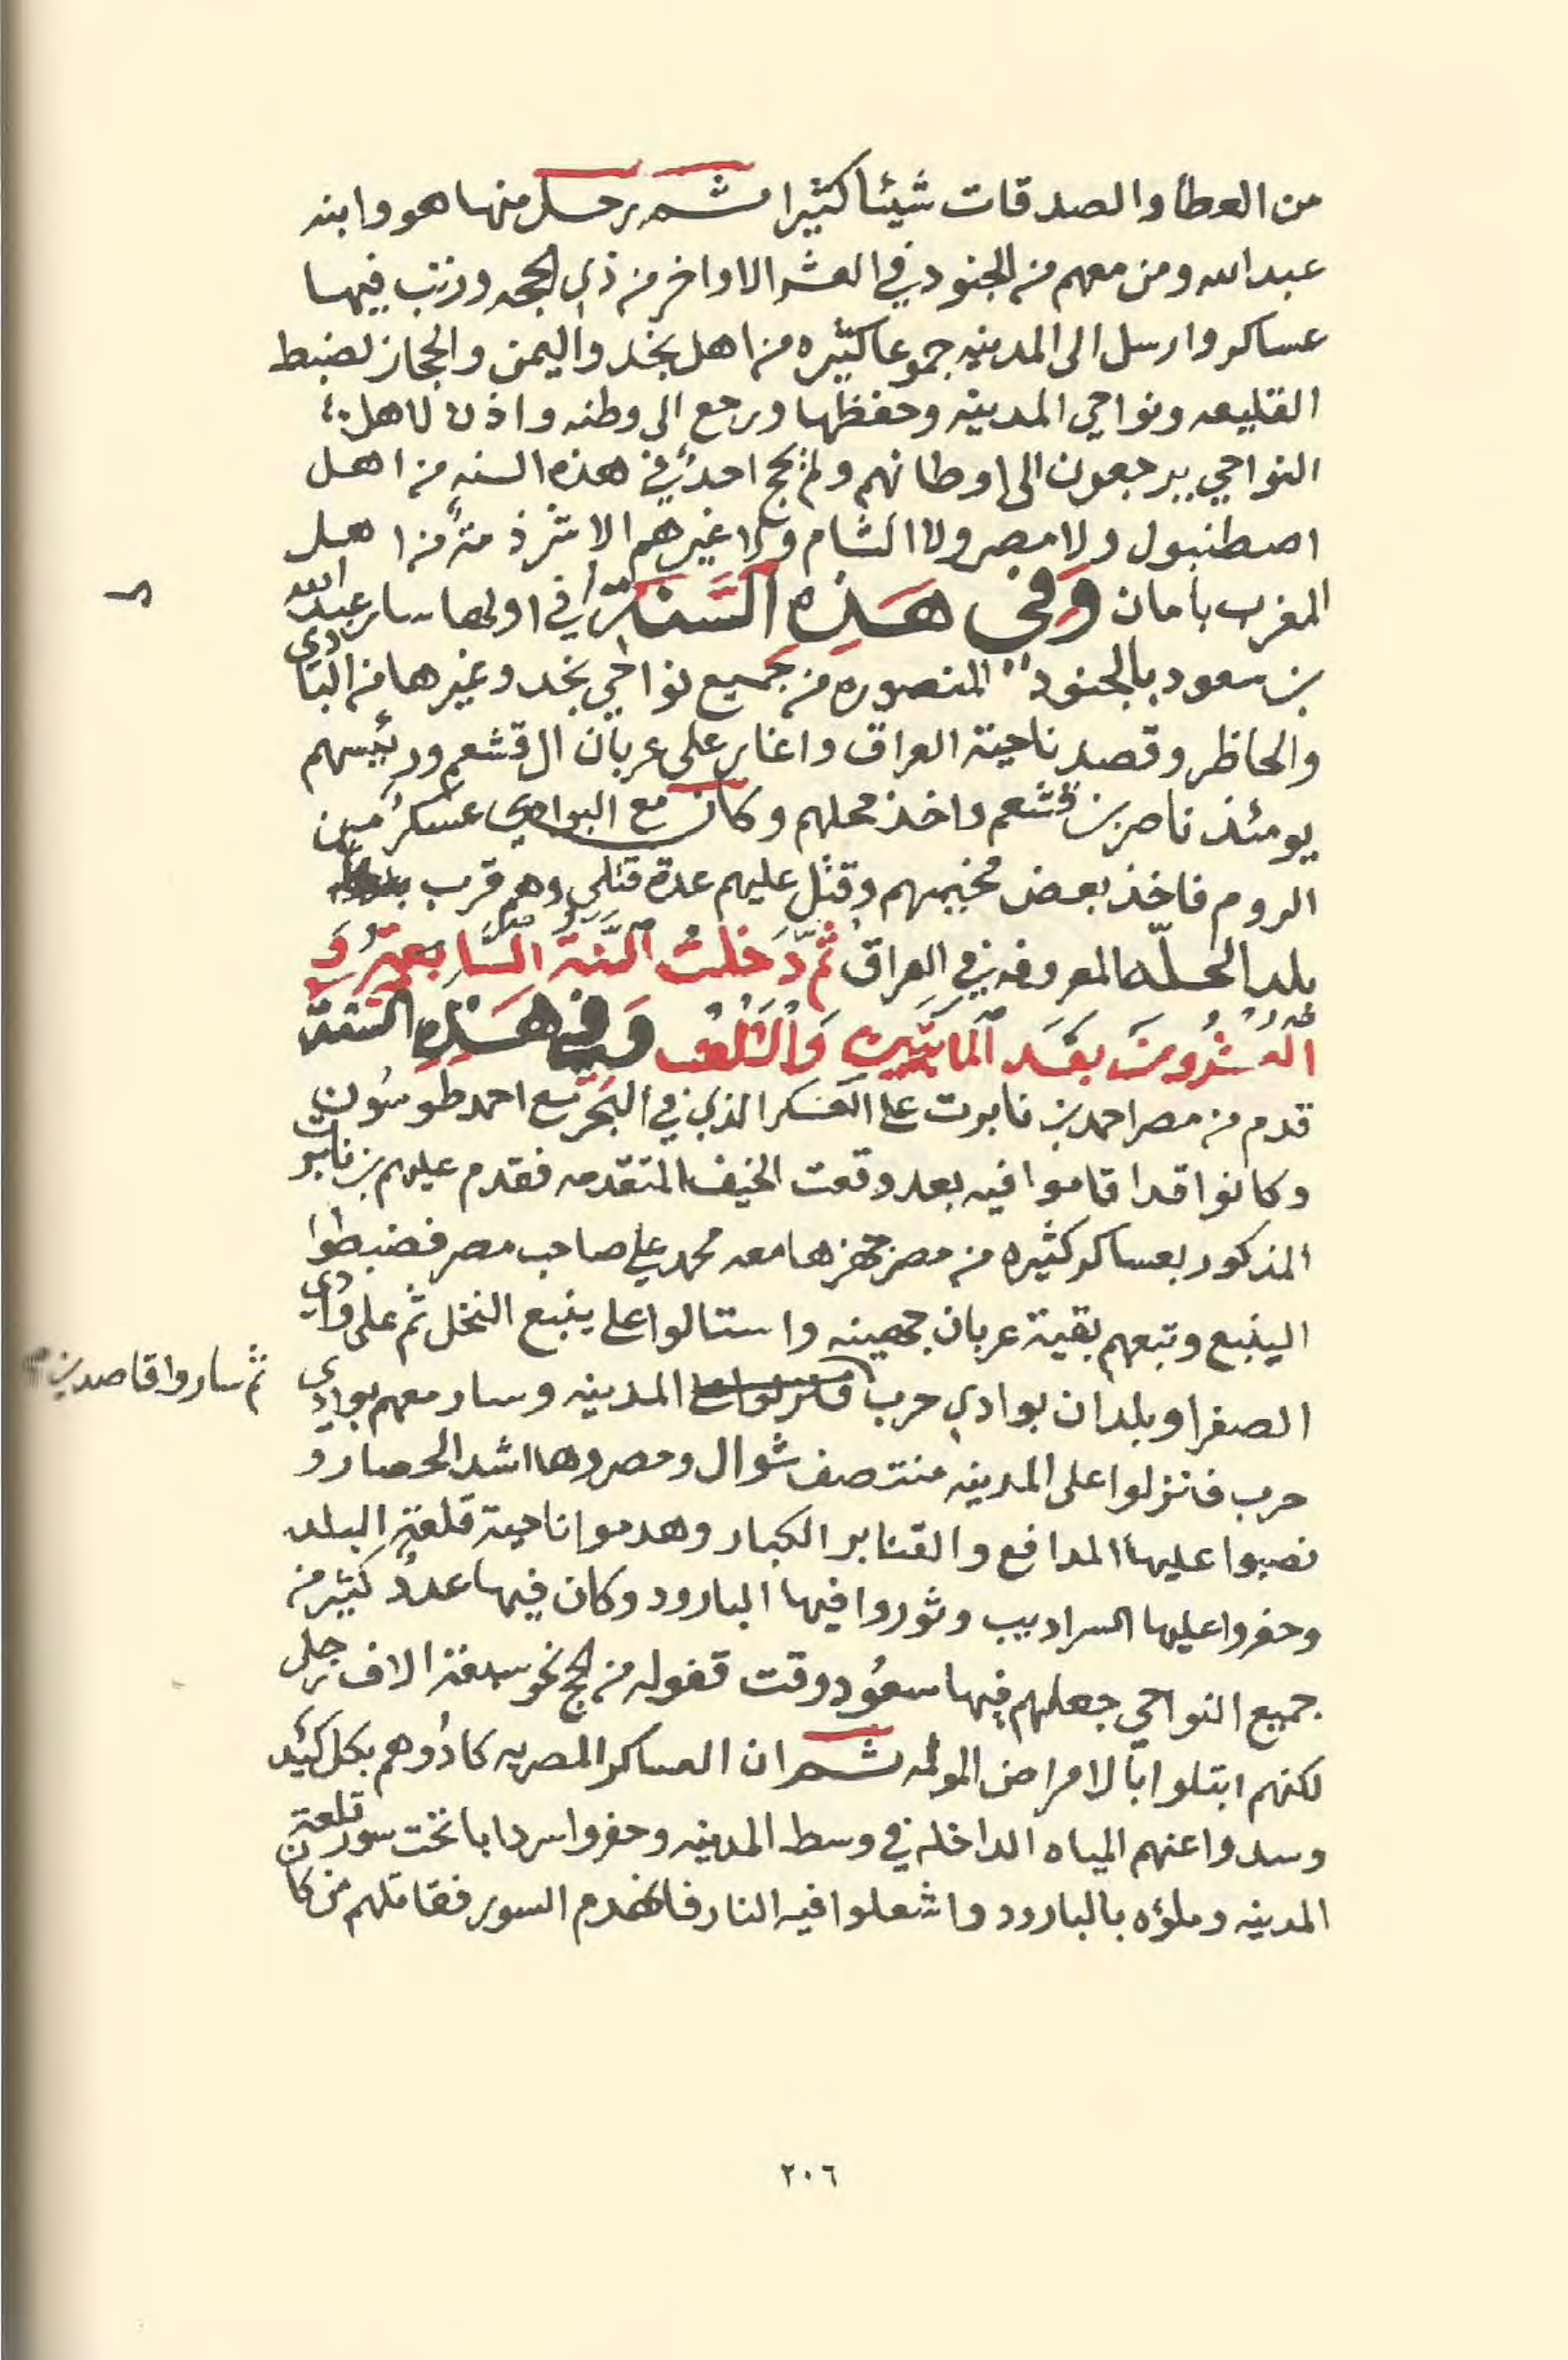 من العطا والصدقات شيئا كثيرا ثم رحل منها هو وابنه
عبدالله ومن معهم من الجنود في العشر الاواخر من ذي الحجه ورتب فيها
عساكر وارسل الى المدينه جموعا كثيره من اهل نجد واليمن والحجاز لضبط
القليعه ونواحي المدينه وحفظها ورجع الى وطنه واذن لاهل
النواحي يرجعون الى اوطانهم ولم يحج احدٌ في هذه السنه من اهل
اصطنبول ولا مصر ولا الشام ولا غيرهم الا شرذمةٌ من اهل
المغرب بامان وَفي هَذِهِ السَّنَة في اولها سار عبد الله
بن سعود بالجنود المنصوره من جميع نواحي نجد وغيرها من البادي
والحاظر وقصد ناحية العراق واغار على عربان ال قشعم ورئيسهم
يومئذ ناصر بن قشعم واخذ محلهم وكان مع البوادي عسكرٌ من
الروم فاخذ بعض مخيمهم وقتل عليهم عدة قتلى وهم قرب
بلد الحلّه المعروفه في العراق ثُمّ دَخلتْ السَّنة السَّابعةُ وَ
العشرُونَ بعْدَ المَائتَين وَالأَلْف وَفي هَذِهِ السَّنة
قدم من مصر احمد بن نابوت على العسكر الذي في البَحْر مع احمد طوسُون
وكانوا قد اقاموا فيه بعد وقعت الخيف المتقدمه فقدم عليهم بن نابوت
المذكور بعساكر كثيره من مصر جهزها معه محمد علي صاحب مصر فضبطوا
الينبع وتبعهم بقية عربان جهينه واستالوا على ينبع النخل ثم على وادي
الصفرا وبلدان بوادي حرب المدينه وسار معهم بوادي
ثم ساروا قاصدين
حرب فانزلوا على المدينه منتصف شوال وحصروها اشد الحصار و
نصبوا عليها المدافع والقنابر الكبار وهدموا ناحية قلعة البلد
وحفروا عليها السراديب وثوروا فيها البارود وكان فيها عددٌ كثير من
جميع النواحي جعلهم فيها سعُود وقت قفوله من الحج نحو سبعة الاف رجل
لكنهم ابتلوا بالامراض المولمه ثم ان العساكر المصريه كادُوهم بكل كيْد
وسدوا عنهم المياه الداخله في وسط المدينه وحفروا سردابا تحت سور قلعة
المدينه وملؤه بالبارود واشعلوا فيه النار فانهدم السور فقاتلهم من كان
٢٠٦